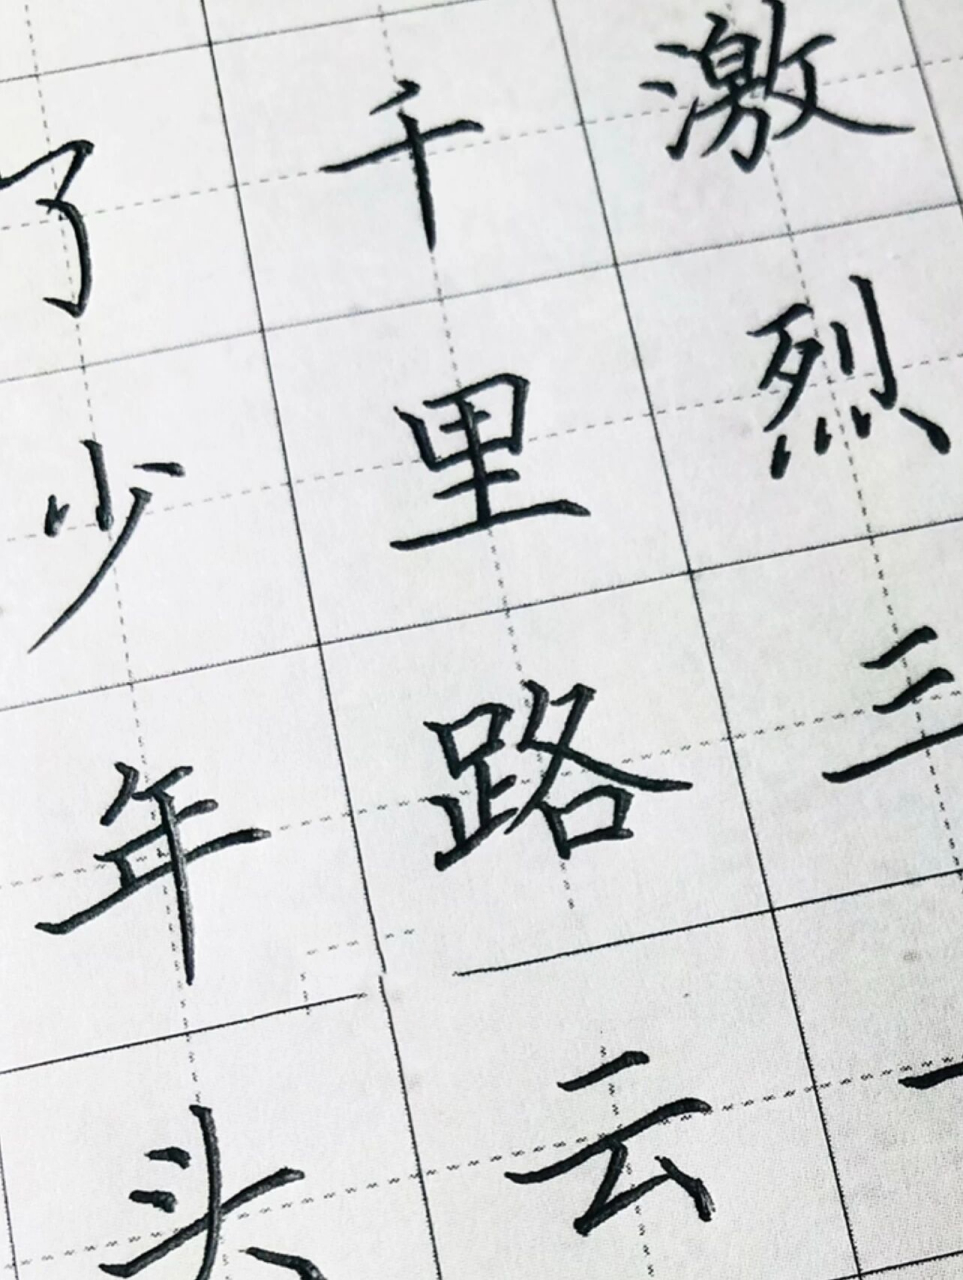 激烈三
千里路云
了少年头